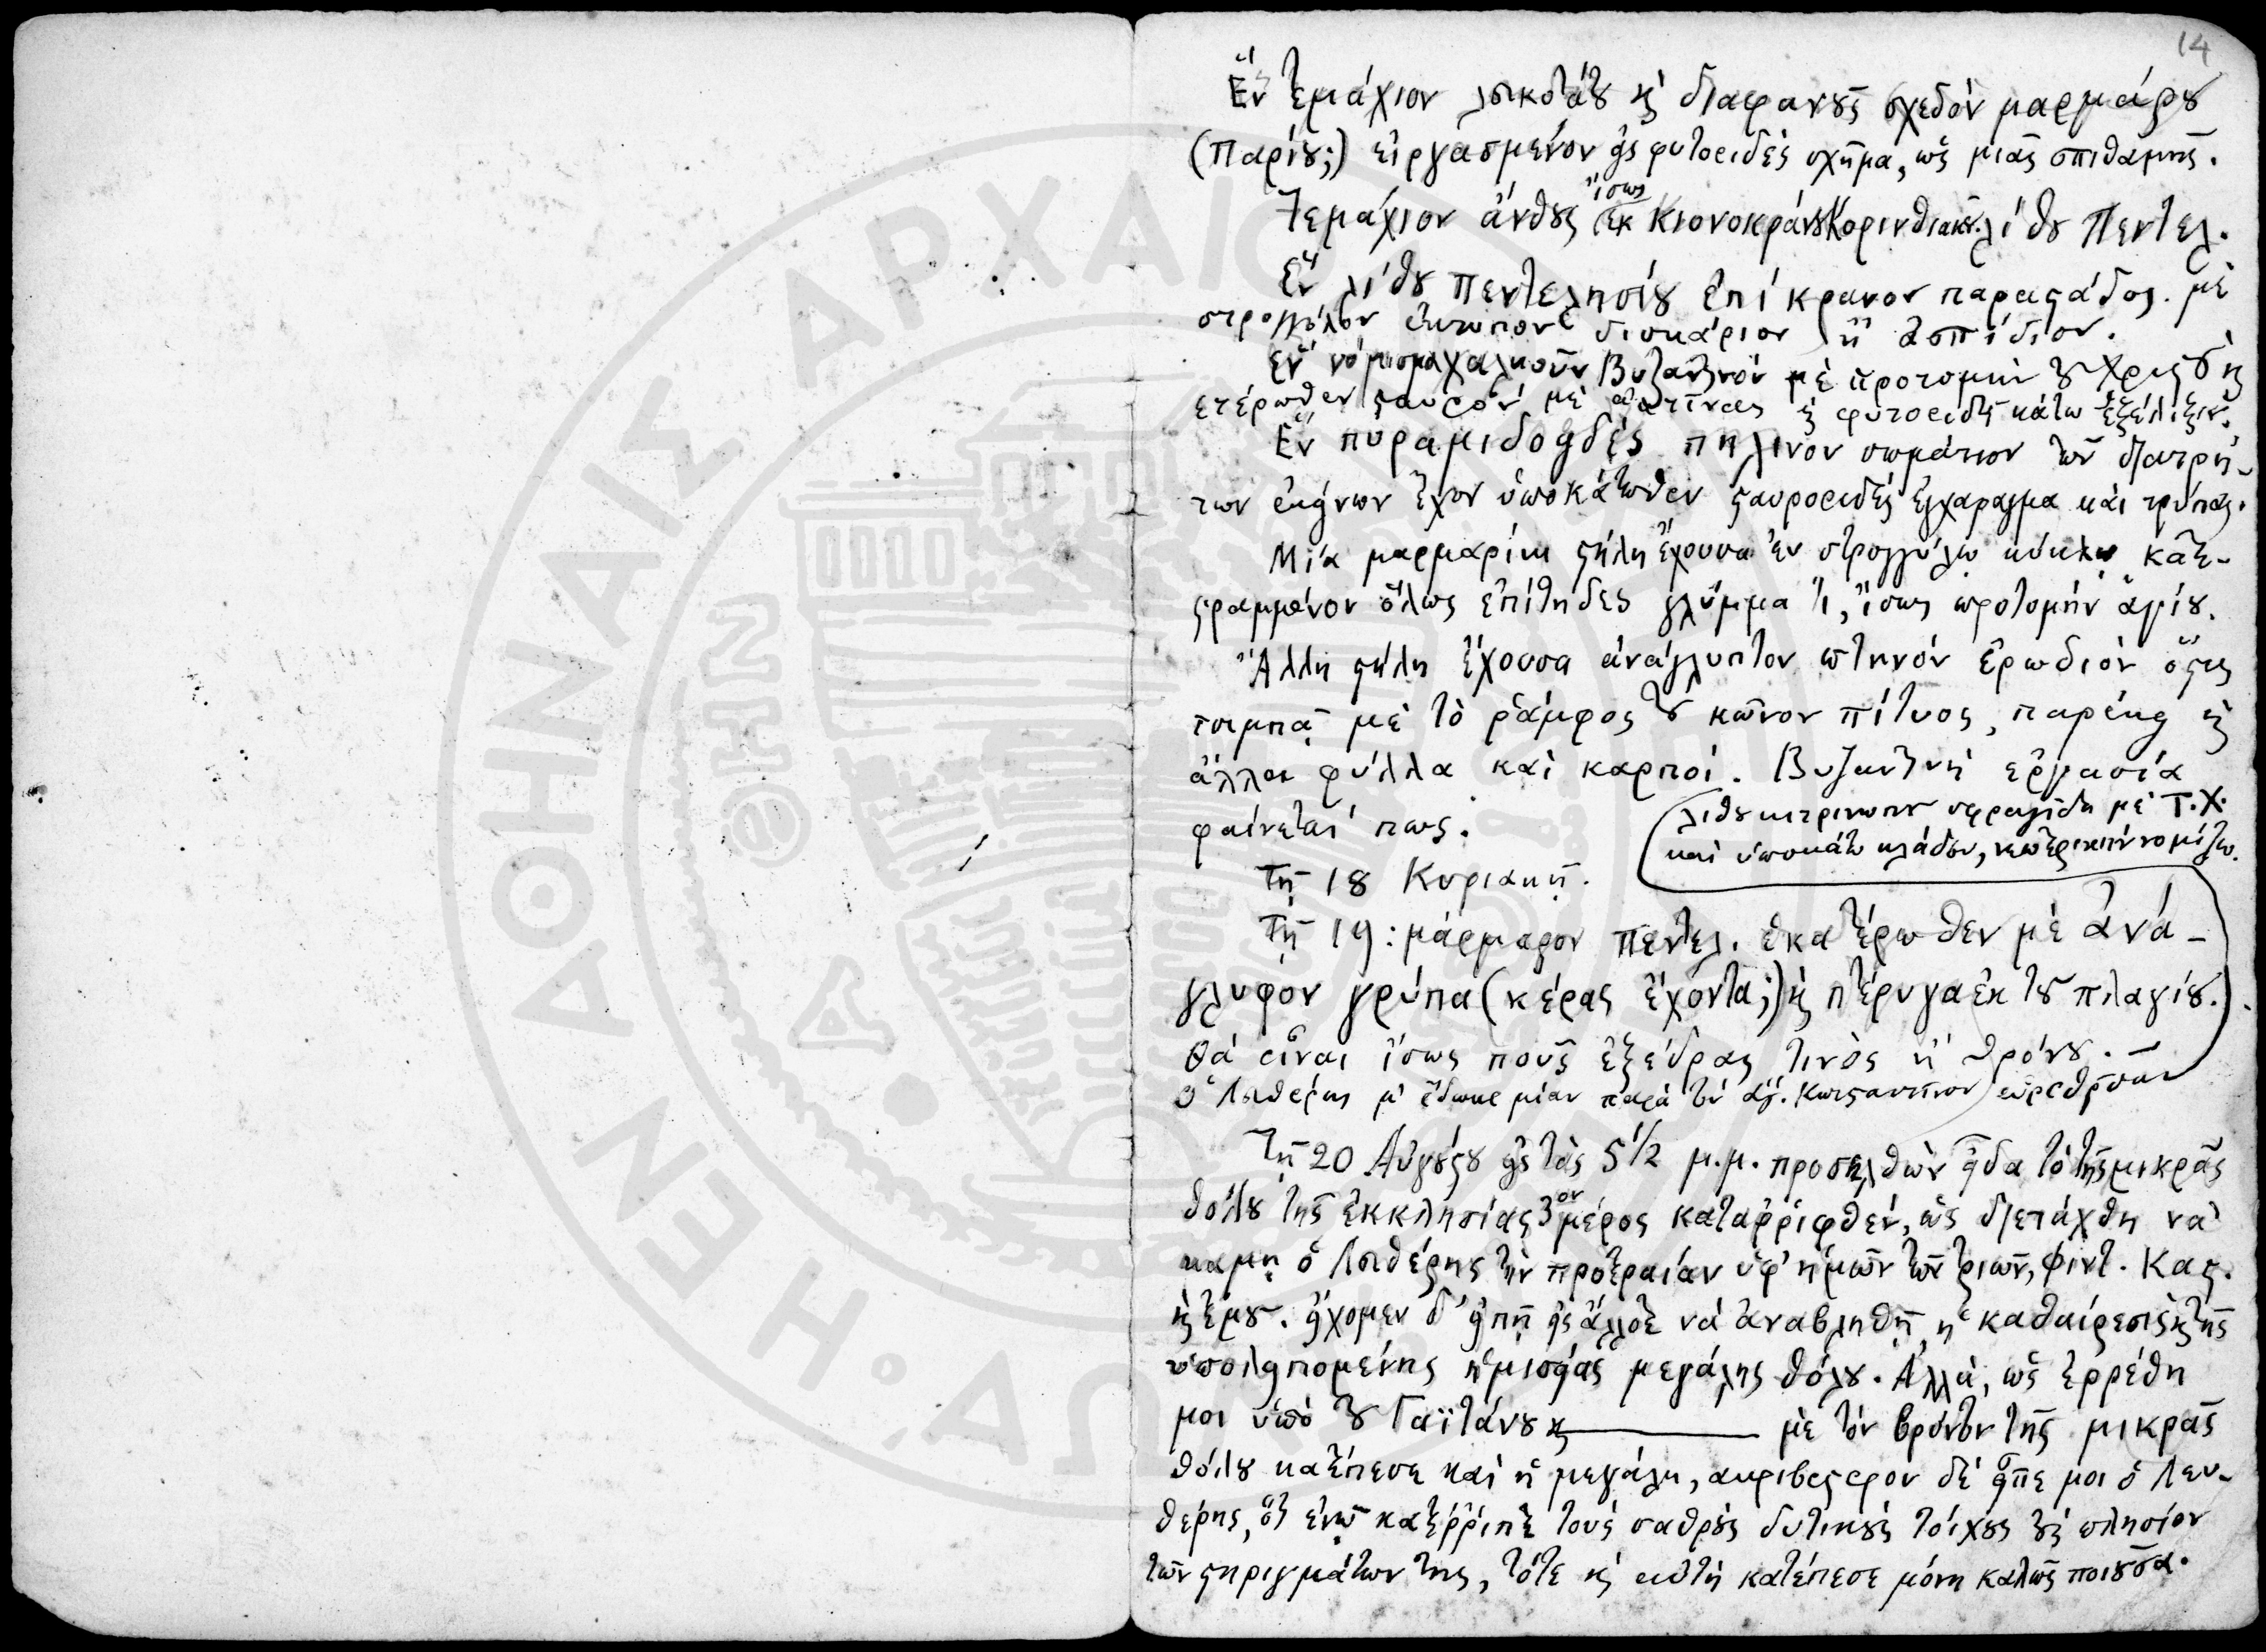 14
Ἓν τεμάχιον λευκοτάτȣ κ̀ διαφανȣ͂ς σχεδὸν μαρμάρȣ
(Παρίȣ;) εἰργασμένον εἰς φυτοειδὲς σχῆμα, ὡς μιᾶς σπιθαμῆς.
Τεμάχιον ἄνθȣς ἴσως ἐκ Κιονοκράνȣ Κορινθιακ. λίθȣ Πεντελ.
Ἓν λίθȣ Πεντελησίȣ ἐπίκρανον παραϛάδος. μὲ
στρογγύλον ἔκτυπον δισκάριον ἢ ἀσπίδιον.
Ἓν νόμισμα χαλκοῦν Βυζαντινὸν μὲ προτομὴν τȣ͂ Χριϛȣ͂ κ̀
ετέρωθεν ϛαυρὸν μὲ ἀκτῖνας κ̀ φυτοειδῆ κάτω ἐξέλιξιν.
Ἓν πυραμιδοειδὲς πήλινον σωμάτιον τῶν διατρή-
των ἐκείνων ἔχον ὑποκάτωθεν ϛαυροειδὲς ἐγχάραγμα καὶ τρύπας.
Μία μαρμαρίνη ϛήλη ἔχουσα ἐν στρογγύλῳ κύκλῳ κατε-
ϛραμμένον ὅλως ἐπίτηδες γλύμμα τι, ἴσως προτομὴν ἁγίȣ.
Ἄλλη ϛήλη ἔχουσα ἀνάγλυπτον πτηνόν ἐρωδιόν ὅϛις
τσιμπᾷ μὲ τὸ ράμφος τȣ κῶνον πίτυος, παρέκει κ̀
ἄλλα φύλλα καὶ καρποί. Βυζαντινὴ ἐργασία
φαίνεταί πως.
λίθȣ κιτρινωπȣ͂ σφραγῖδα μὲ Τ.Χ.
καὶ ὑποκάτω κλάδον, νεωτερικὴν νομίζω.
Τῇ 18 Κυριακῇ.
Τῇ 19: μάρμαρον Πεντελ. ἑκατέρωθεν μὲ ἀνά-
γλυφον γρύπα (κέρας ἔχοντα;) κ̀ πτέρυγα ἐκ τȣ͂ πλαγίȣ.
Θὰ εἶναι ἴσως ποῦς ἐξέδρας τινὸς ἢ θρόνȣ. —
Ὁ Λευθέρης μ' ἔδωκε μίαν παρὰ τὸν ἅγ. Κωνϛαντῖνον εὑρεθεῖσαν
Τῇ 20 Αὐγȣ́ϛȣ εἰς τὰς 5 1/2 μ.μ. προσελθὼν εἶδα τὸ τῆς μικρᾶς
θόλȣ τῆς ἐκκλησίας 3ον μέρος καταῤῥιφθέν, ὡς διετάχθη νὰ
καμῃ ὁ Λευθέρης τὴν προτεραίαν ὑφ' ἡμῶν τῶν τριῶν, Φιντ. Καϛ.
κ̀ ἐμȣ͂. εἴχομεν δ' εἰπῇ εἰς ἄλλοτε νὰ ἀναβληθῇ ἡ καθαίρεσις κ̀ τῆς
ὑπολειπομένης ἡμισείας μεγάλης θόλȣ. Ἀλλά, ὡς ἐρρέθη
μοι ὑπὸ τȣ͂ Γαϊτάνȣ κ̀ ——— μὲ τὸν βρόντον τῆς μικρᾶς
θόλȣ κατέπεσε καὶ ἡ μεγάλη, ακριβέϛερον δὲ εἶπέ μοι ὁ Λευ-
θέρης, ὅτι ἐνῷ κατέῤῥιπτε τοὺς σαθρȣ̀ς δυτικȣ̀ς τοίχȣς τȣ̀ς πλησίον
τῶν ϛηριγμάτων της, τότε κ̀ αὐτὴ κατέπεσε μόνη καλῶς ποιȣ͂σα.